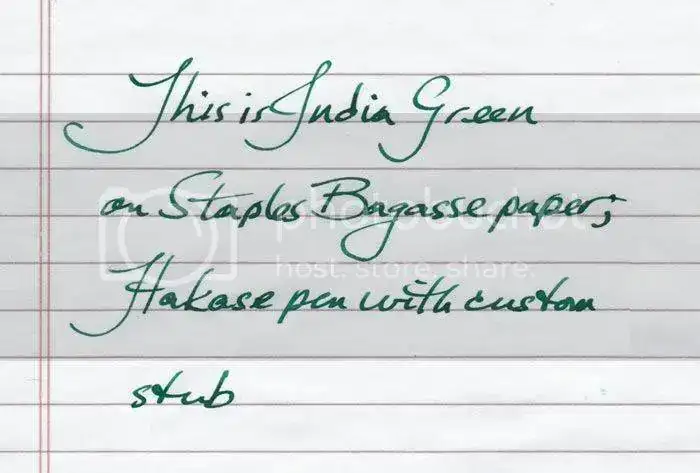 This is India Green
on Staples Bagasse paper;
photobucket
host. store. share.
Hakase pen with custom
stub